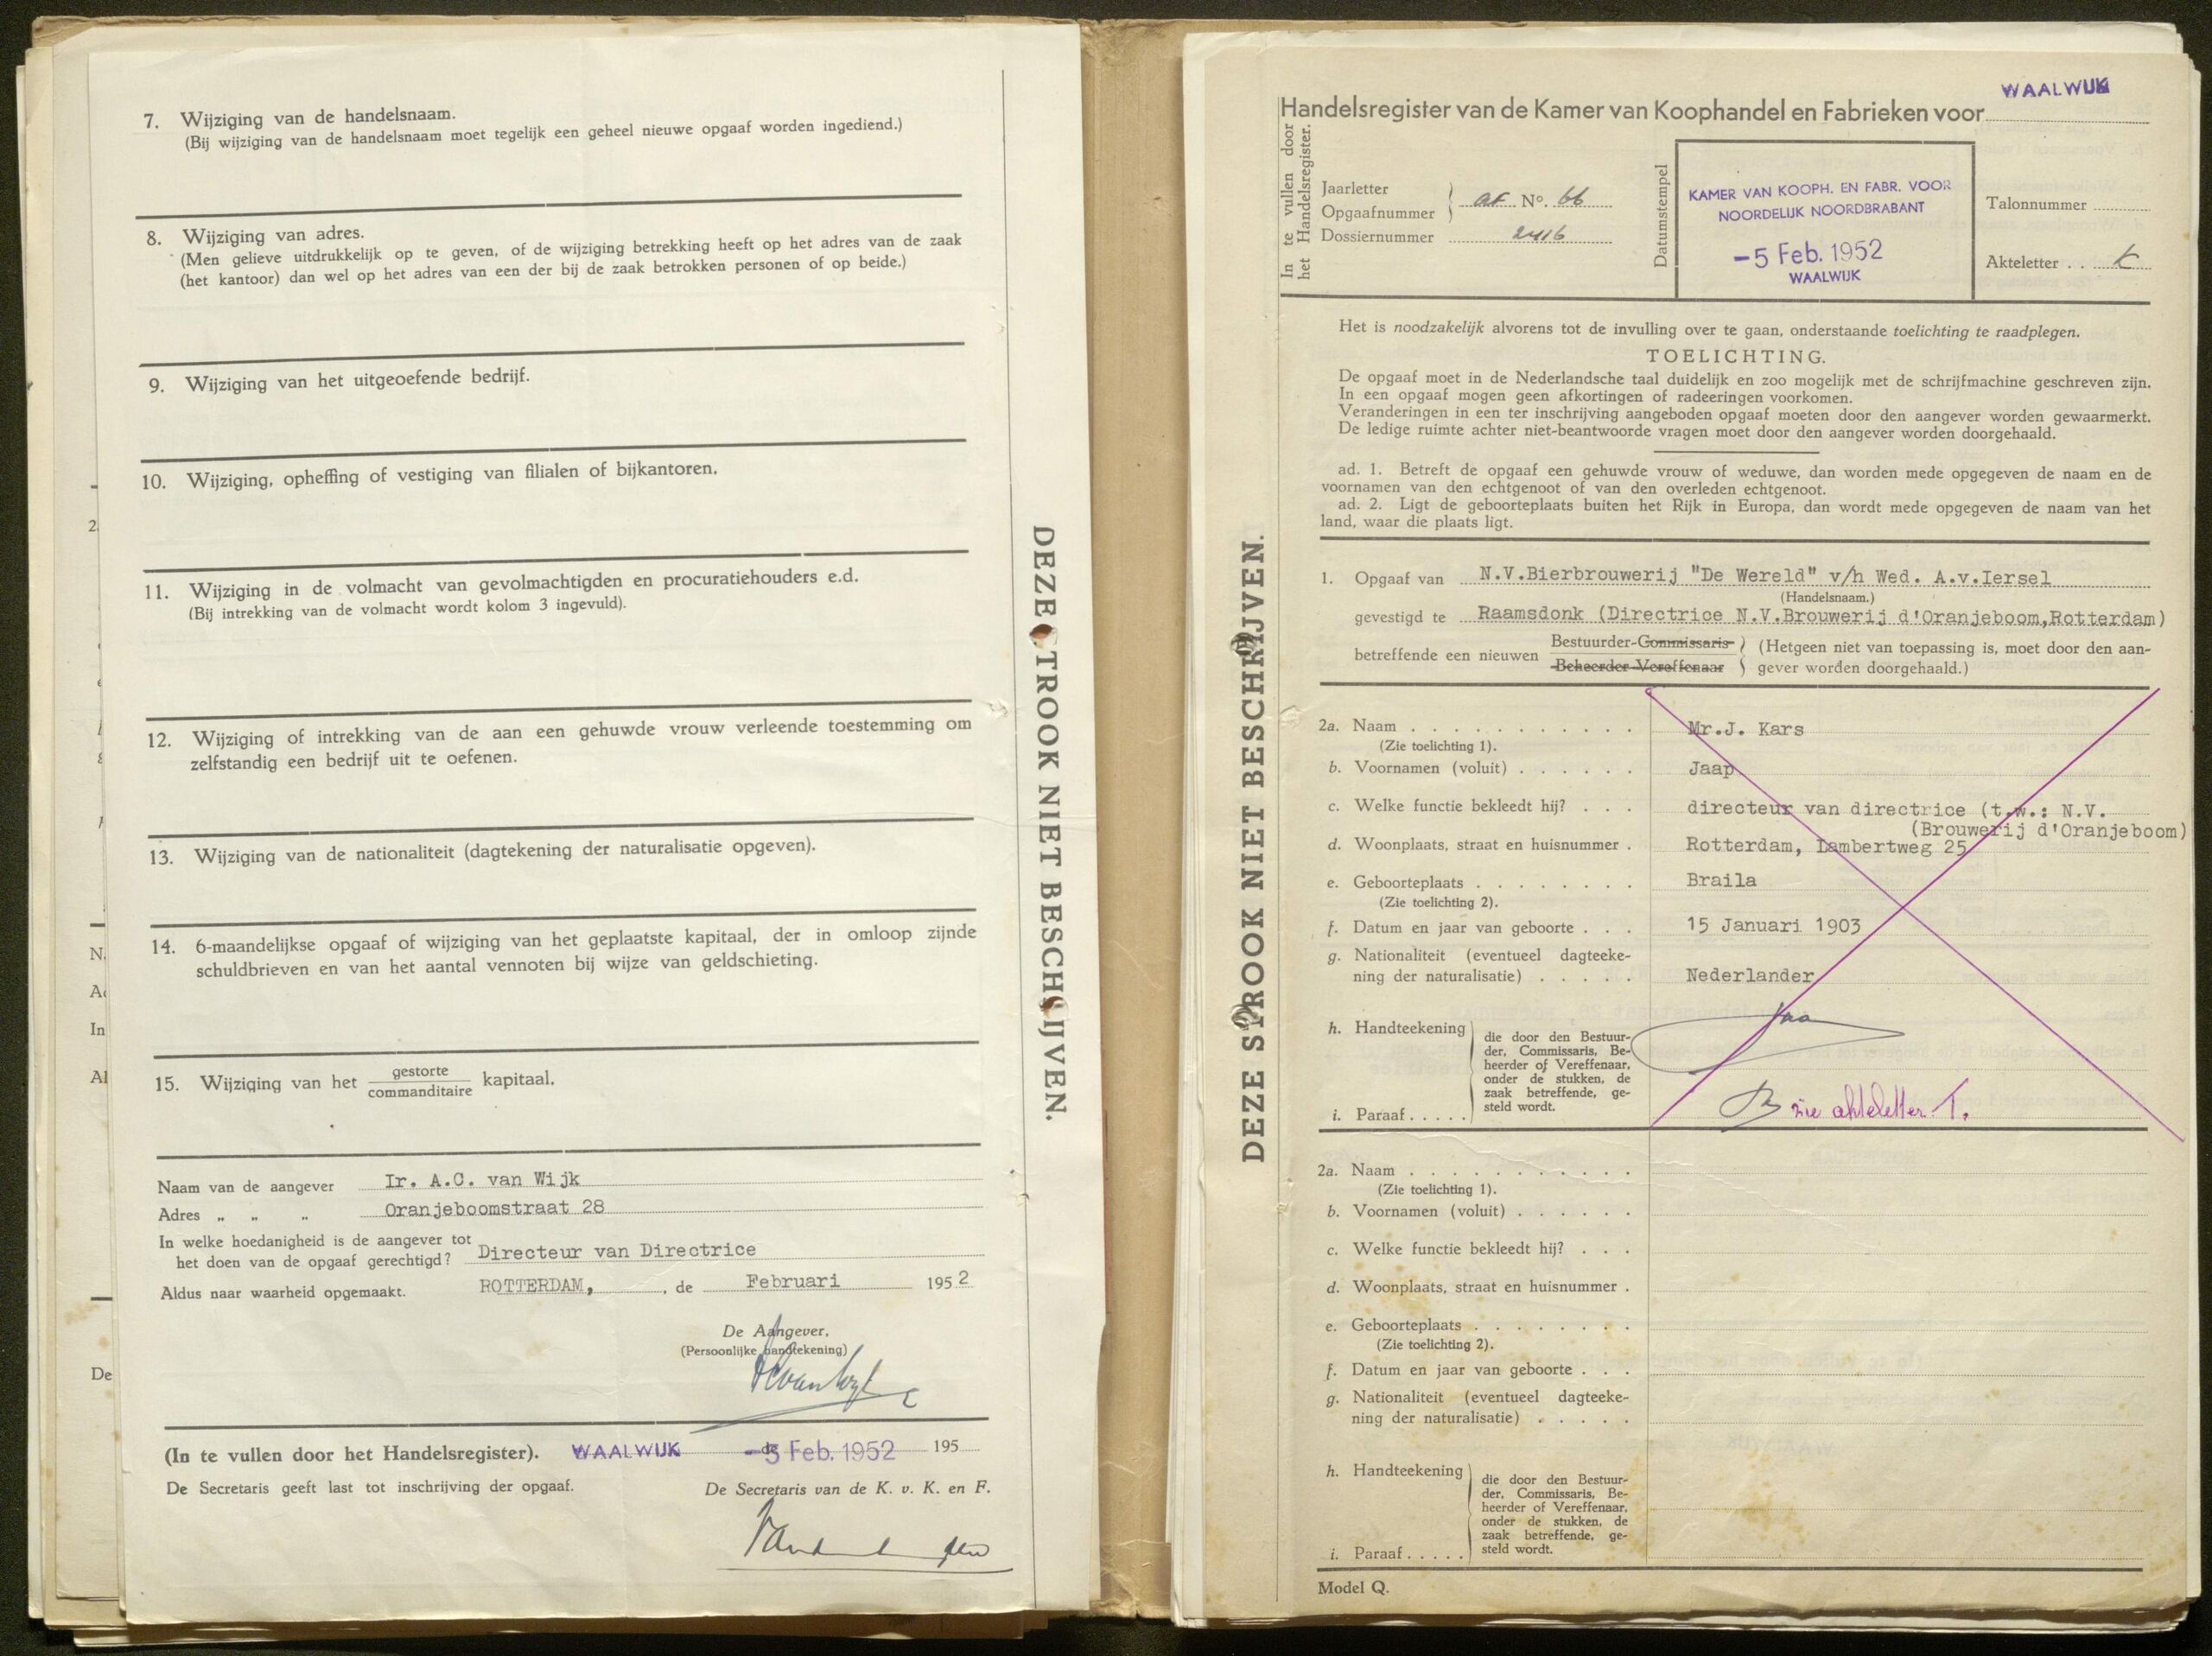 7. Wijziging van de handelsnaam.
(Bij wijziging van de handelsnaam moet tegelijk een geheel nieuwe opgaaf worden ingediend.)
8. Wijziging van adres.
(Men gelieve uitdrukkelijk op te geven, of de wijziging betrekking heeft op het adres van de zaak
(het kantoor) dan wel op het adres van een der bij de zaak betrokken personen of op beide.)
9. Wijziging van het uitgeoefende bedrijf.
10. Wijziging, opheffing of vestiging van filialen of bijkantoren.
11. Wijziging in de volmacht van gevolmachtigden en procuratiehouders e.d.
(Bij intrekking van de volmacht wordt kolom 3 ingevuld).
12. Wijziging of intrekking van de aan een gehuwde vrouw verleende toestemming om
zelfstandig een bedrijf uit te oefenen.
13. Wijziging van de nationaliteit (dagtekening der naturalisatie opgeven).
14. 6-maandelijkse opgaaf of wijziging van het geplaatste kapitaal, der in omloop zijnde
schuldbrieven en van het aantal vennoten bij wijze van geldschieting.
15. Wijziging van het gestorte kapitaal.
commanditaire
Naam van de aangever Ir. A.C. van Wijk
Adres „ „ „ Oranjeboomstraat 28
In welke hoedanigheid is de aangever tot
het doen van de opgaaf gerechtigd? Directeur van Directrice
Aldus naar waarheid opgemaakt. ROTTERDAM, , de Februari 1952
De Aangever,
(Persoonlijke handtekening)
(In te vullen door het Handelsregister). WAALWIJK de -5 Feb. 1952 195
De Secretaris geeft last tot inschrijving der opgaaf. De Secretaris van de K. v. K. en F.
DEZE STROOK NIET BESCHRIJVEN.
DEZE STROOK NIET BESCHRIJVEN.
WAALWIJK
Handelsregister van de Kamer van Koophandel en Fabrieken voor
In te vullen door
het Handelsregister.
Jaarletter
Opgaafnummer af No. 66
Dossiernummer 2416
Datumstempel
KAMER VAN KOOPH. EN FABR. VOOR
NOORDELIJK NOORDBRABANT
-5 Feb. 1952
WAALWIJK
Talonnummer
Akteletter . . K
Het is noodzakelijk alvorens tot de invulling over te gaan, onderstaande toelichting te raadplegen.
TOELICHTING.
De opgaaf moet in de Nederlandsche taal duidelijk en zoo mogelijk met de schrijfmachine geschreven zijn.
In een opgaaf mogen geen afkortingen of radeeringen voorkomen.
Veranderingen in een ter inschrijving aangeboden opgaaf moeten door den aangever worden gewaarmerkt.
De ledige ruimte achter niet-beantwoorde vragen moet door den aangever worden doorgehaald.
ad. 1. Betreft de opgaaf een gehuwde vrouw of weduwe, dan worden mede opgegeven de naam en de
voornamen van den echtgenoot of van den overleden echtgenoot.
ad. 2. Ligt de geboorteplaats buiten het Rijk in Europa, dan wordt mede opgegeven de naam van het
land, waar die plaats ligt.
1. Opgaaf van N.V.Bierbrouwerij "De Wereld" v/h Wed. A.v.Iersel
(Handelsnaam.)
gevestigd te Raamsdonk (Directrice N.V.Brouwerij d'Oranjeboom,Rotterdam)
betreffende een nieuwen Bestuurder-Commissaris (Hetgeen niet van toepassing is, moet door den aan-
Beheerder-Vereffenaar gever worden doorgehaald.)
2a. Naam . . . . . . . . . . . Mr.J. Kars
(Zie toelichting 1).
b. Voornamen (voluit) . . . . . . Jaap
c. Welke functie bekleedt hij? . . . directeur van directrice (t.w.: N.V.
(Brouwerij d'Oranjeboom)
d. Woonplaats, straat en huisnummer . Rotterdam, Lambertweg 25
e. Geboorteplaats . . . . . . . . Braila
(Zie toelichting 2).
f. Datum en jaar van geboorte . . . 15 Januari 1903
g. Nationaliteit (eventueel dagteeke-
ning der naturalisatie) . . . . . Nederlander
h. Handteekening
die door den Bestuur-
der, Commissaris, Be-
heerder of Vereffenaar,
onder de stukken, de
zaak betreffende, ge-
steld wordt.
i. Paraaf . . . . . zie akteletter T.
2a. Naam . . . . . . . . . . .
(Zie toelichting 1).
b. Voornamen (voluit) . . . . . .
c. Welke functie bekleedt hij? . . .
d. Woonplaats, straat en huisnummer .
e. Geboorteplaats . . . . . . . .
(Zie toelichting 2).
f. Datum en jaar van geboorte . . .
g. Nationaliteit (eventueel dagteeke-
ning der naturalisatie) . . . . .
h. Handteekening
die door den Bestuur-
der, Commissaris, Be-
heerder of Vereffenaar,
onder de stukken, de
zaak betreffende, ge-
steld wordt.
i. Paraaf . . . . .
Model Q.